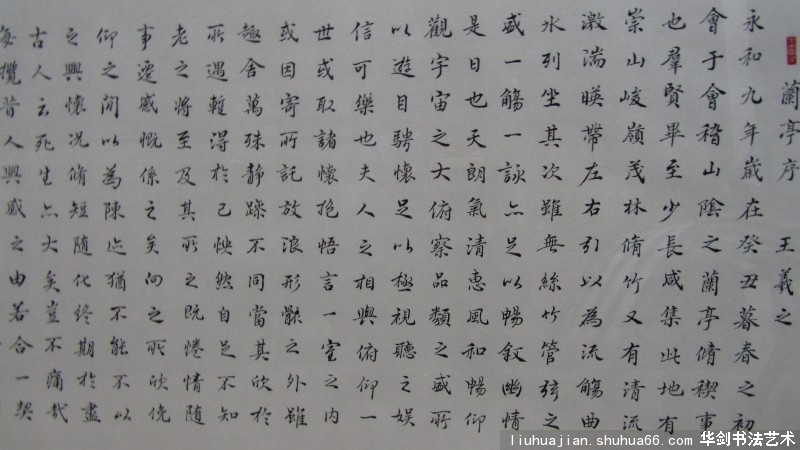 蘭亭序 王羲之
永和九年歲在癸丑暮春之初
會于會稽山陰之蘭亭脩禊事
也羣賢畢至少長咸集此地有
崇山峻嶺茂林脩竹又有清流
激湍暎帶左右引以為流觴曲
水列坐其次雖無絲竹管弦之
盛一觴一詠亦足以暢敘幽情
是日也天朗氣清惠風和暢仰
觀宇宙之大俯察品類之盛所
以遊目騁懷足以極視聽之娛
信可樂也夫人之相與俯仰一
世或取諸懷抱悟言一室之內
或因寄所託放浪形骸之外雖
趣舍萬殊静躁不同當其欣於
所遇暫得於己怏然自足不知
老之將至及其所之既惓情隨
事遷感慨係之矣向之所欣俛
仰之間以為陳迹猶不能不以
之興懷況脩短隨化終期於盡
古人云死生亦大矣豈不痛哉
每攬昔人興感之由若合一契
liuhuajian.shuhua66.com 华剑书法艺术